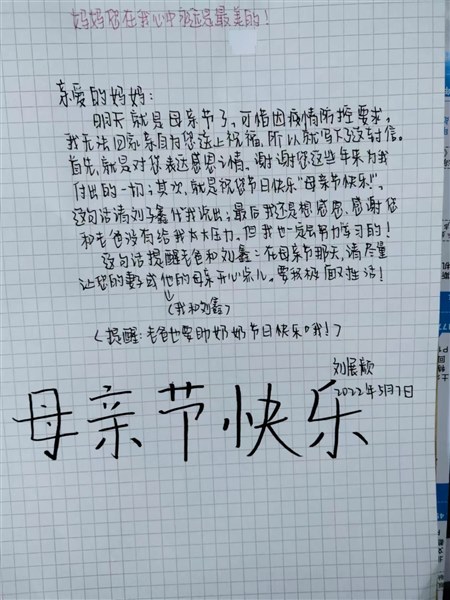 妈妈您在我心中永远是最美的！
亲爱的妈妈：
明天就是母亲节了，可惜因疫情防控要求，
我无法回家亲自为您送上祝福，所以就写下了这封信。
首先，就是对您表达感恩之情。谢谢您这些年来为我
付出的一切；其次，就是祝您节日快乐“母亲节快乐！”，
这句话请刘子鑫代我说出；最后我还是想感恩，感谢您
和老爸没有给我太大压力。但我也一定会努力学习的！
这句话提醒老爸和刘鑫：在母亲节那天，请尽量
让您的妻子或他的母亲开心点儿。要积极面对生活！
（我和刘鑫）
（提醒：老爸也要助奶奶节日快乐哦！）
刘展颖
2022年5月7日
母亲节快乐